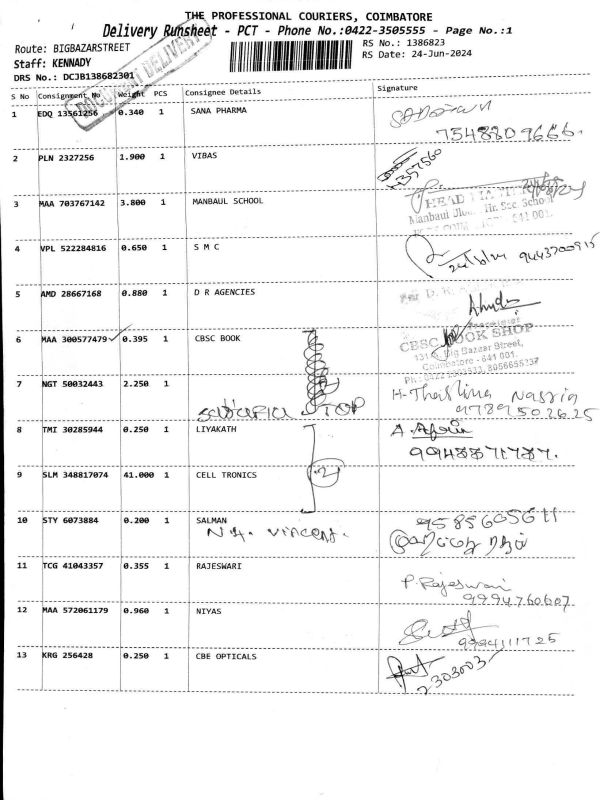 THE PROFESSIONAL COURIERS, COIMBATORE
Delivery Runsheet - PCT - Phone No.:0422-3505555 - Page No.:1
Route: BIGBAZARSTREET
RS No.: 1386823
Staff: KENNADY
RS Date: 24-Jun-2024
DRS No.: DCJB138682301
DOCUMENT DELIVERY
S No Consignment No Weight PCS Consignee Details Signature
1 EDQ 13561256 0.340 1 SANA PHARMA
7548809666.
2 PLN 2327256 1.900 1 VIBAS
4357560
3 MAA 703767142 3.800 1 MANBAUL SCHOOL
HEAD
Manbaul Hr. Sec. School
641 001.
4 VPL 522284816 0.650 1 S M C
9443700915
5 AMD 28667168 0.880 1 D R AGENCIES
For D. R.
6 MAA 300577479 0.395 1 CBSC BOOK
CBSC BOOK SHOP
131 Big Bazaar Street,
Coimbatore - 641 001.
7 NGT 50032443 2.250 1
STOP
H. Thaslima Nasrin
9789502625
8 TMI 30285944 0.250 1 LIYAKATH
A.
9948871787.
9 SLM 348817074 41.000 1 CELL TRONICS
2
10 STY 6073884 0.200 1 SALMAN
N.H. Vincent.
9585605611
11 TCG 41043357 0.355 1 RAJESWARI
P. Rajeswari
9994760607
12 MAA 572061179 0.960 1 NIYAS
9994111725
13 KRG 256428 0.250 1 CBE OPTICALS
2303003